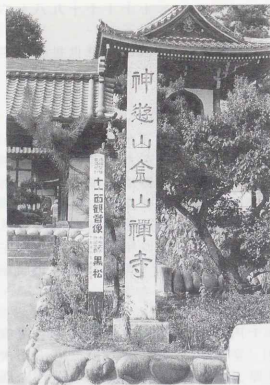 神遊山金山禅寺
十一面観音像
黒松